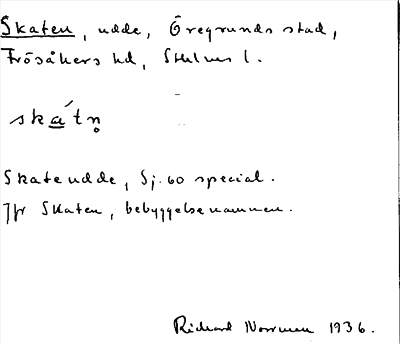 Skaten, udde, Öregrunds stad,
Frösåkers hd, Sthlms l.
skátn̥
Skateudde, Sj. 60 special.
Jfr Skaten, bebyggelsenamnen.
Rickard Norrman 1936.